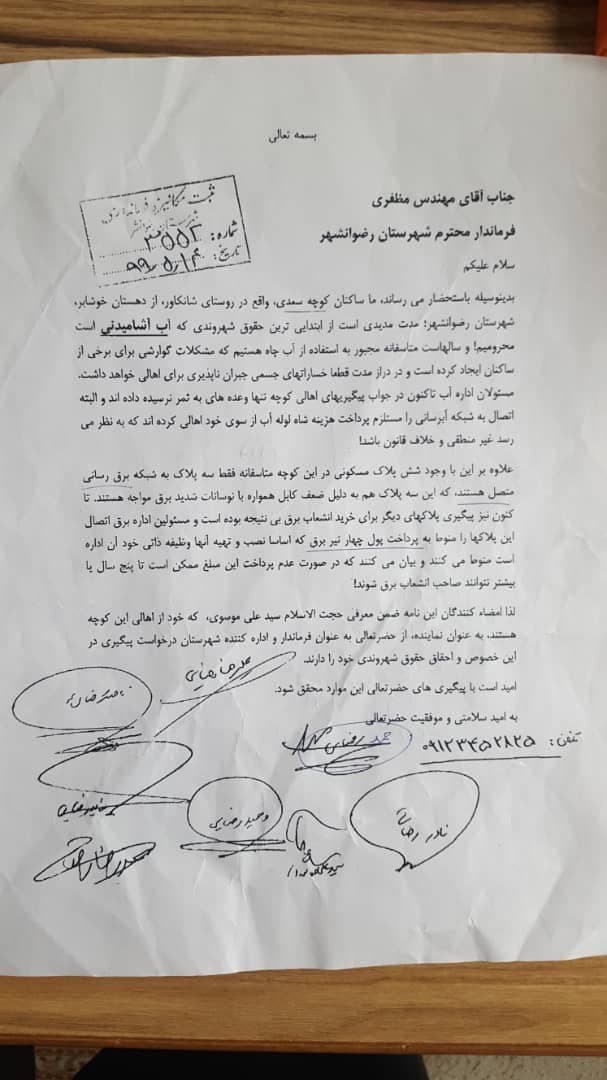 بسمه تعالی
ثبت مکانیزه فرمانداری
شهرستان رضوانشهر
شماره: ۳۵۵۲
تاریخ: ۹۹/۵/۱۴
جناب آقای مهندس مظفری
فرماندار محترم شهرستان رضوانشهر
سلام علیکم
بدینوسیله باستحضار می رساند، ما ساکنان کوچه سعدی، واقع در روستای شانکاور، از دهستان خوشابر،
شهرستان رضوانشهر؛ مدت مدیدی است از ابتدایی ترین حقوق شهروندی که آب آشامیدنی است
محرومیم! و سالهاست متاسفانه مجبور به استفاده از آب چاه هستیم که مشکلات گوارشی برای برخی از
ساکنان ایجاد کرده است و در دراز مدت قطعا خساراتهای جسمی جبران ناپذیری برای اهالی خواهد داشت.
مسئولان اداره آب تاکنون در جواب پیگیریهای اهالی کوچه تنها وعده های به ثمر نرسیده داده اند و البته
اتصال به شبکه آبرسانی را مستلزم پرداخت هزینه شاه لوله آب از سوی خود اهالی کرده اند که به نظر می
رسد غیر منطقی و خلاف قانون باشد!
علاوه بر این با وجود شش پلاک مسکونی در این کوچه متاسفانه فقط سه پلاک به شبکه برق رسانی
متصل هستند، که این سه پلاک هم به دلیل ضعف کابل همواره با نوسانات شدید برق مواجه هستند. تا
کنون نیز پیگیری پلاکهای دیگر برای خرید انشعاب برق بی نتیجه بوده است و مسئولین اداره برق اتصال
این پلاکها را منوط به پرداخت پول چهار تیر برق که اساسا نصب و تهیه آنها وظیفه ذاتی خود آن اداره
است منوط می کنند و بیان می کنند که در صورت عدم پرداخت این مبلغ ممکن است تا پنج سال یا
بیشتر نتوانند صاحب انشعاب برق شوند!
لذا امضاء کنندگان این نامه ضمن معرفی حجت الاسلام سید علی موسوی، که خود از اهالی این کوچه
هستند، به عنوان نماینده، از حضرتعالی به عنوان فرماندار و اداره کننده شهرستان درخواست پیگیری در
این خصوص و احقاق حقوق شهروندی خود را دارند.
امید است با پیگیری های حضرتعالی این موارد محقق شود.
به امید سلامتی و موفقیت حضرتعالی
تلفن: ۰۹۱۲۳۴۵۲۸۲۵
رضایی
وحید رضایی
نادر رضایی